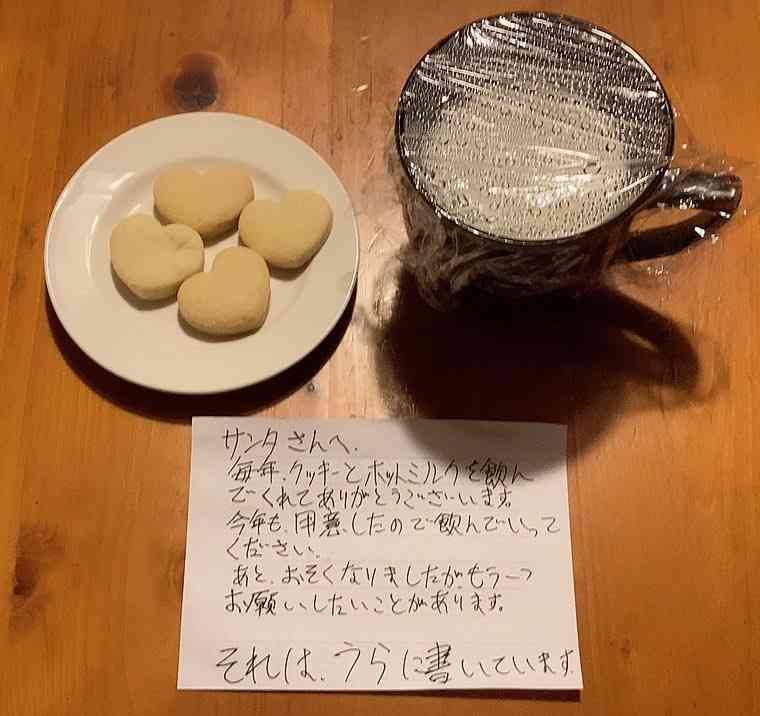 サンタさんへ.
毎年.クッキーとホットミルクを飲ん
でくれてありがとうございいます。
今年も、用意したので飲んでいって
ください.
あと、おそくなりましたがもう一つ
お願いしたいことがあります。
それは、うらに書いています.